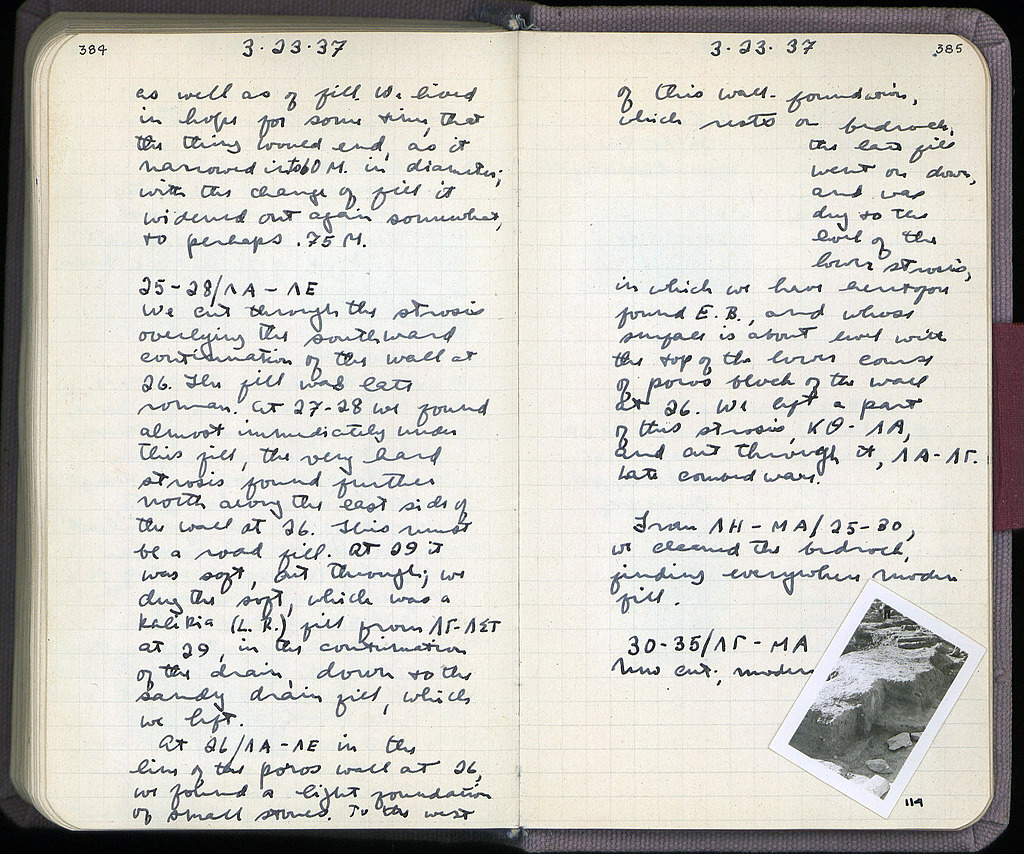 384
3·23·37
as well as of fill. We lived
in hope for some time, that
the thing would end, as it
narrowed into .60 M. in diameter;
with the change of fill it
widened out again somewhat,
to perhaps .75 M.
25-28/ΛΑ-ΛΕ
We cut through the strosis
overlying the southward
continuation of the wall at
26. The fill was late
roman. At 27-28 we found
almost immediately under
this fill, the very hard
strosis found further
north along the east side of
the wall at 26. This must
be a road fill. At 29 it
was soft, cut through; we
dug the soft, which was a
(L.R.) fill from ΛΓ-ΛΣΤ
at 29, in the continuation
of the drain, down to the
sandy drain fill, which
we left.
At 26/ΛΑ-ΛΕ in the
line of the poros wall at 26,
we found a light foundation
of small stones. To the west
3·23·37
385
of this wall-foundation,
which rests on bedrock,
the late fill
went on down,
and was
dug to the
level of the
lower strosis,
in which we have heretofore
found E.B., and whose
surface is about level with
the top of the lower course
of poros block of the wall
at 26. We left a part
of this strosis, ΚΘ-ΛΑ,
and cut through it, ΛΑ-ΛΓ.
Late coarse ware.
From ΛΗ-ΜΑ/25-30,
we cleaned the bedrock,
finding everywhere modern
fill.
30-35/ΛΓ-ΜΑ
New cut; modern
114